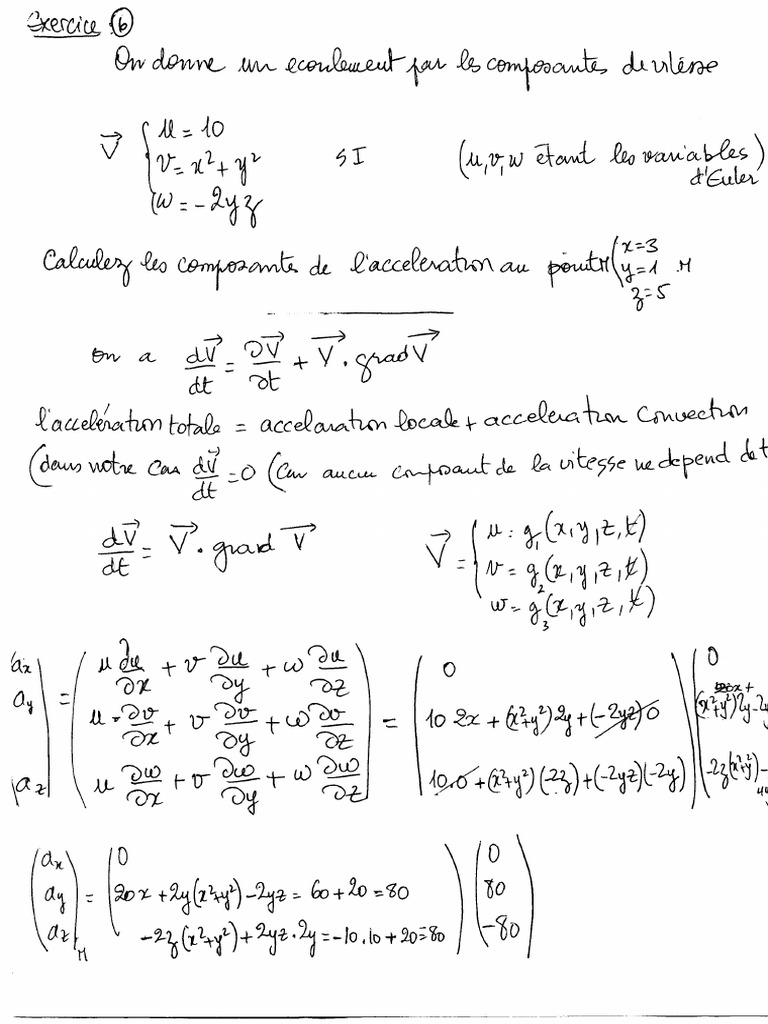 Exercice ⑥
On donne un ecoulement par les composantes de vitesse
V⃗ { u = 10
v = x² + y² SI (u, v, w étant les variables d'Euler)
w = -2yz
Calculez les composantes de l'acceleration au point M ( x=3 y=1 z=5 . M
on a dV⃗/dt = ∂V⃗/∂t + V⃗ . grad V⃗
l'accelération totale = accelaration locale + acceleration Convection
(dans notre Cas dV⃗/dt = 0 (Car aucun composant de la vitesse ne depend de t
dV⃗/dt = V⃗ . grad V⃗ V⃗ = { u = g₁(x, y, z, t)
v = g₂(x, y, z, t)
w = g₃(x, y, z, t)
ax | = ( u ∂u/∂x + v ∂u/∂y + w ∂u/∂z ) = ( 0 ) ( 0
ay | u ∂v/∂x + v ∂v/∂y + w ∂v/∂z 10 2x + (x²+y²)2y + (-2yz)0 (x²+y²)2y-2y
az | u ∂w/∂x + v ∂w/∂y + w ∂w/∂z 10.0 + (x²+y²)(-2z) + (-2yz)(-2y) -2z(x²+y²)-
(ax) ( 0 ) ( 0 )
(ay) = 20x + 2y(x²+y²) - 2yz = 60 + 20 = 80 80
(az)M -2z(x²+y²) + 2yz.2y = -10.10 + 20 = 80 -80